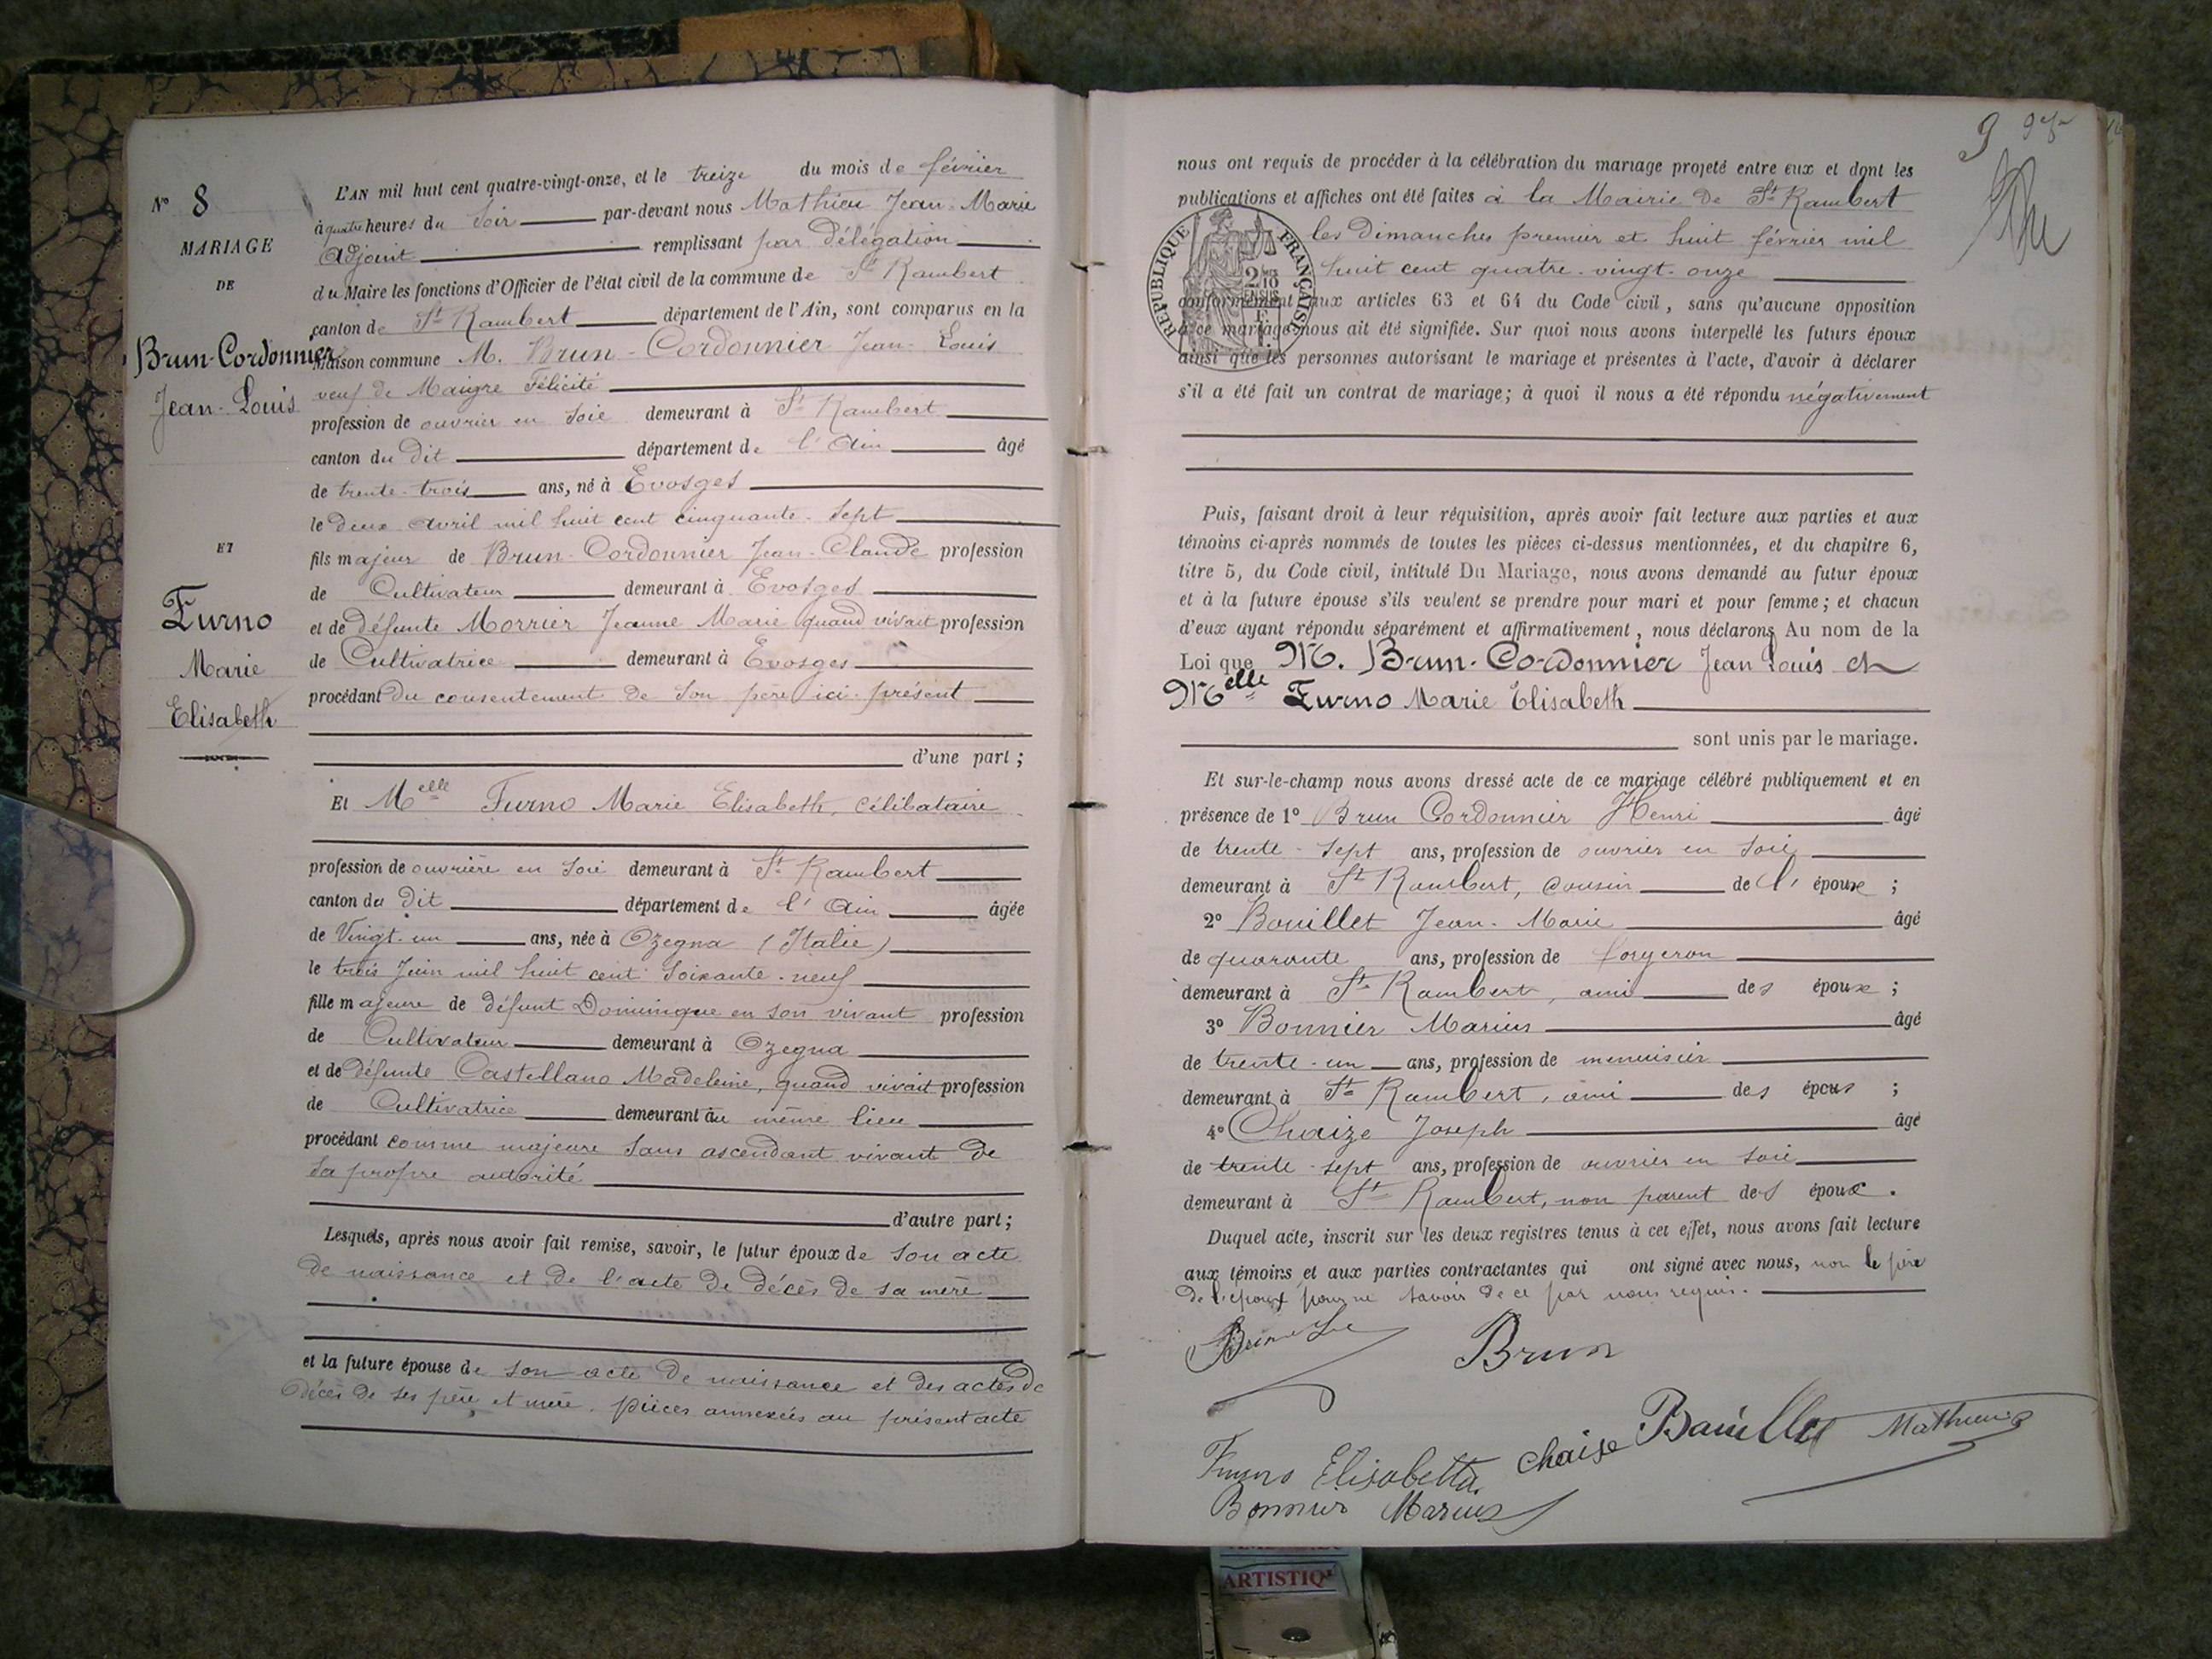 N° 8
MARIAGE
DE
Brun-Cordonnier
Jean-Louis
ET
Furno
Marie
Elisabeth
L'AN mil huit cent quatre-vingt-onze, et le treize du mois de février
à quatre heures du soir par-devant nous Mathieu Jean-Marie
Adjoint remplissant par délégation
du Maire les fonctions d'Officier de l'état civil de la commune de St Rambert
canton de St Rambert département de l'Ain, sont comparus en la
Maison commune M. Brun-Cordonnier Jean-Louis
veuf de Maigre Félicité
profession de ouvrier en soie demeurant à St Rambert
canton du dit département de l'Ain âgé
de trente-trois ans, né à Evosges
le deux avril mil huit cent cinquante-sept
fils majeur de Brun-Cordonnier Jean-Claude profession
de Cultivateur demeurant à Evosges
et de défunte Morrier Jeanne Marie quand vivait profession
de Cultivatrice demeurant à Evosges
procédant du consentement de son père ici présent
d'une part ;
Et Melle Furno Marie Elisabeth, célibataire
profession de ouvrière en soie demeurant à St Rambert
canton du dit département de l'Ain âgée
de Vingt-un ans, née à Ozegna (Italie)
le trois Juin mil huit cent soixante-neuf
fille majeure de défunt Dominique en son vivant profession
de Cultivateur demeurant à Ozegna
et de défunte Castellano Madeleine, quand vivait profession
de Cultivatrice demeurant au même lieu
procédant comme majeure sans ascendant vivant de
sa propre autorité
d'autre part ;
Lesquels, après nous avoir fait remise, savoir, le futur époux de son acte
de naissance et de l'acte de décès de sa mère
et la future épouse de son acte de naissance et des actes de
décès de ses père et mère. pièces annexées au présent acte
9
nous ont requis de procéder à la célébration du mariage projeté entre eux et dont les
publications et affiches ont été faites à la Mairie de St Rambert
les Dimanches premier et huit février mil
huit cent quatre-vingt-onze
RÉPUBLIQUE FRANÇAISE
2/10
EN SUS
conformément aux articles 63 et 64 du Code civil, sans qu'aucune opposition
à ce mariage nous ait été signifiée. Sur quoi nous avons interpellé les futurs époux
ainsi que les personnes autorisant le mariage et présentes à l'acte, d'avoir à déclarer
s'il a été fait un contrat de mariage ; à quoi il nous a été répondu négativement
Puis, faisant droit à leur réquisition, après avoir fait lecture aux parties et aux
témoins ci-après nommés de toutes les pièces ci-dessus mentionnées, et du chapitre 6,
titre 5, du Code civil, intitulé Du Mariage, nous avons demandé au futur époux
et à la future épouse s'ils veulent se prendre pour mari et pour femme ; et chacun
d'eux ayant répondu séparément et affirmativement, nous déclarons Au nom de la
Loi que M. Brun-Cordonnier Jean Louis et
Melle Furno Marie Elisabeth
sont unis par le mariage.
Et sur-le-champ nous avons dressé acte de ce mariage célébré publiquement et en
présence de 1° Brun Cordonnier Henri âgé
de trente-sept ans, profession de ouvrier en soie
demeurant à St Rambert, cousin de l'époux ;
2° Bouillet Jean-Marie âgé
de quarante ans, profession de forgeron
demeurant à St Rambert, ami des époux ;
3° Bonnier Marius âgé
de trente-un ans, profession de menuisier
demeurant à St Rambert, ami des époux ;
4° Chaize Joseph âgé
de trente-sept ans, profession de ouvrier en soie
demeurant à St Rambert, non parent des époux.
Duquel acte, inscrit sur les deux registres tenus à cet effet, nous avons fait lecture
aux témoins et aux parties contractantes qui ont signé avec nous, non le père
de l'époux pour ne savoir de ce par nous requis.
Brun
Furno Elisabetta chaise Bouillet Mathieu
Bonnier Marius
ARTISTIQ